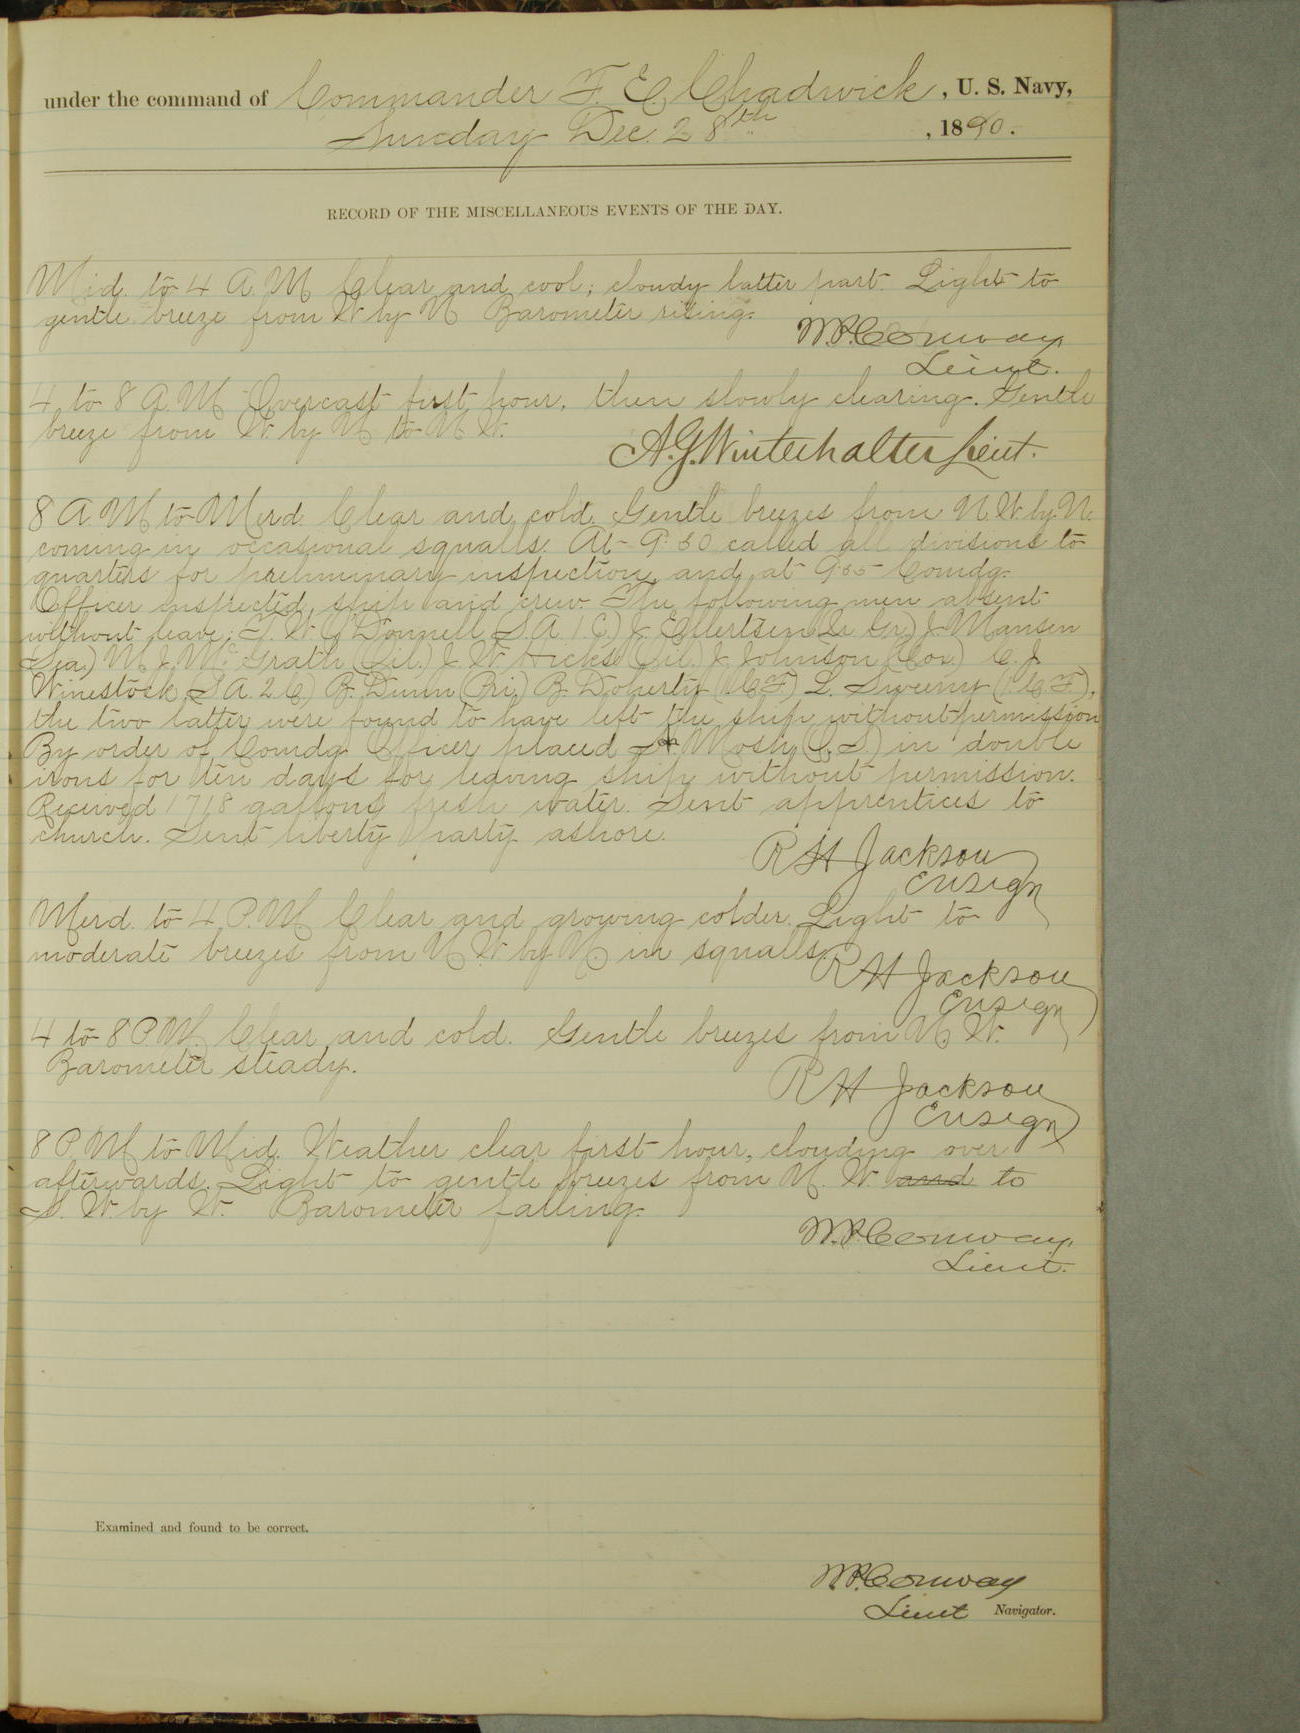 under the command of Commander F. E. Chadwick, U. S. Navy,
Sunday Dec. 28th, 1890.
RECORD OF THE MISCELLANEOUS EVENTS OF THE DAY.
Mid. to 4 A.M Clear and cool; cloudy latter part. Light to
gentle breeze from W by N Barometer rising.
W.P. Conway
Lieut.
4 to 8 A.M Overcast first hour, then slowly clearing. Gentle
breeze from W. by N to N W.
A.G. Winterhalter Lieut.
8 A M to Merd. Clear and cold. Gentle breezes from N.W. by N.
coming in occasional squalls. At 9.30 called all divisions to
quarters for preliminary inspection, and at 9.35 Comdg.
Officer inspected ship and crew. The following men absent
without leave; F. W. O'Donnell (S.A. 1 C.) J. Ellertsen (Qr Gr.) J. Mansen
(Sea) M. J. McGrath (Oil.) J. W. Hicks (Oil.) J. Johnson (Cox) C. J.
Winestock (S A 2 C) B. Dunn (Pri.) B. Doherty (1. C F.) L. Sweeny (1. C F.),
the two latter were found to have left the ship without permission
By order of Comdg. Officer placed Mosh (O.S.) in double
irons for ten days for leaving ship without permission.
Received 1718 gallons fresh water. Sent apprentices to
church. Sent liberty party ashore.
R H Jackson
Ensign
Merd. to 4 P.M Clear and growing colder. Light to
moderate breezes from N W by N. in squalls.
R H Jackson
Ensign
4 to 8 P.M. Clear and cold. Gentle breezes from N. W.
Barometer steady.
R H Jackson
Ensign
8 P M to Mid. Weather clear first hour, clouding over
afterwards. Light to gentle breezes from N. W. and to
S. W. by W. Barometer falling.
W.P. Conway
Lieut.
Examined and found to be correct.
W.P. Conway
Lieut Navigator.